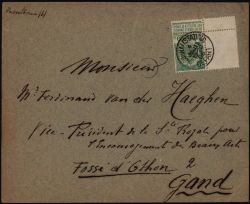 Monsieur
Mr Ferdinand van der Haeghen
Vice-Président de la Sté Royale pour
l'Encouragement des Beaux Arts
Fossé d'Othon 2
Gand